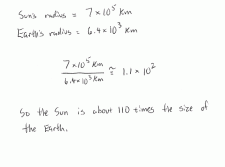 Sun's radius = 7 × 10⁵ Km
Earth's radius = 6.4 × 10³ Km
7 × 10⁵ Km
6.4 × 10³ Km
≅ 1.1 × 10²
So the Sun is about 110 times the size of
the Earth.